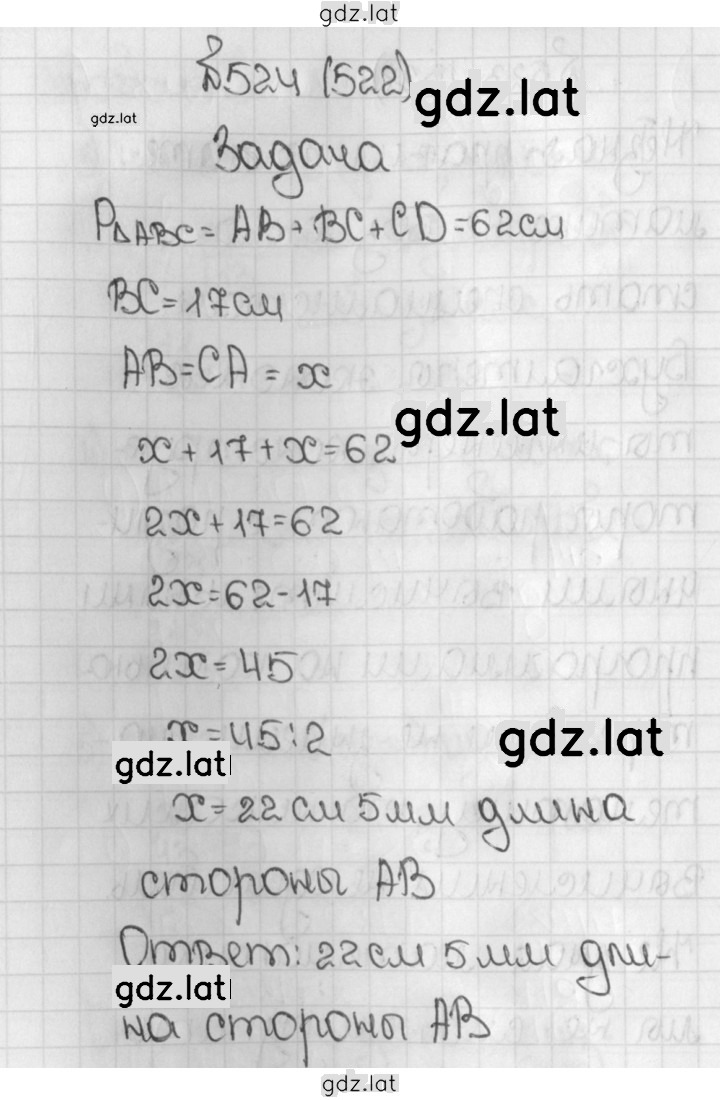 gdz.lat
№524 (522)
gdz.lat
gdz.lat
Задача
P△ABC = AB + BC + CD = 62см
BC = 17см
AB = CA = x
gdz.lat
x + 17 + x = 62
2x + 17 = 62
2x = 62 - 17
2x = 45
x = 45 : 2
gdz.lat
gdz.lat
x = 22 см 5 мм длина
стороны AB
Ответ: 22 см 5 мм дли-
gdz.lat
на стороны AB
gdz.lat